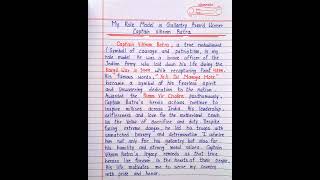 My Role Model is Gallantry Award Winner
Captain Vikram Batra
Captain Vikram Batra, a true embodiment
of courage and patriotism, is my
role model. He was a brave officer of the
Indian Army who laid down his life during the
Kargil War in 1999 while recapturing Point 4875.
His famous words, "Yeh Dil Maange More"
became a symbol of his fearless spirit
and unwavering dedication to the nation.
Awarded the Param Vir Chakra posthumously,
Captain Batra's heroic actions continue to
inspire millions across India. His leadership,
selflessness and love for the motherland teach
us the value of sacrifice and duty. Despite
facing extreme danger, he led his troops with
unmatched bravery and determination. I admire
him not only for his gallantry but also for
his humility and strong moral values. Captain
Vikram Batra's legacy reminds us that true
heroes live forever in the hearts of their people.
His life motivates me to serve my country
with pride and honor.